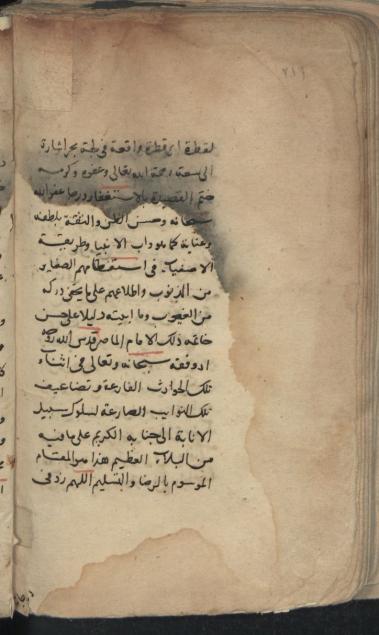 ٢١٦
لقطة او قطرة واقعة في لجة بحر اشارة
الى سعة رحمة الله تعالى وعفوه وكرمه
ختم القصيدة بالاستغفار ورجا عفو الله
سبحانه وحسن الظن والثقة بلطفه
وعناية كما هو داب الانبيا وطريقة
الاصفيا في استعظامهم الصغاير
من الذنوب واطلاعهم على ما يخفى دركه
من العيوب وما ابيته دليلا على حسن
خاتمه ذلك الامام الماهر قدس الله روحه
اذ وفقه سبحانه وتعالى في اثناء
تلك الحوادث القارعة وتضاعيف
تلك النوايب الصارعة لسلوك سبيل
الانابة الى جنابه الكريم على ما فيه
من البلاء العظيم هذا هو المقام
الموسوم بالرضا والتسليم اللهم زد في